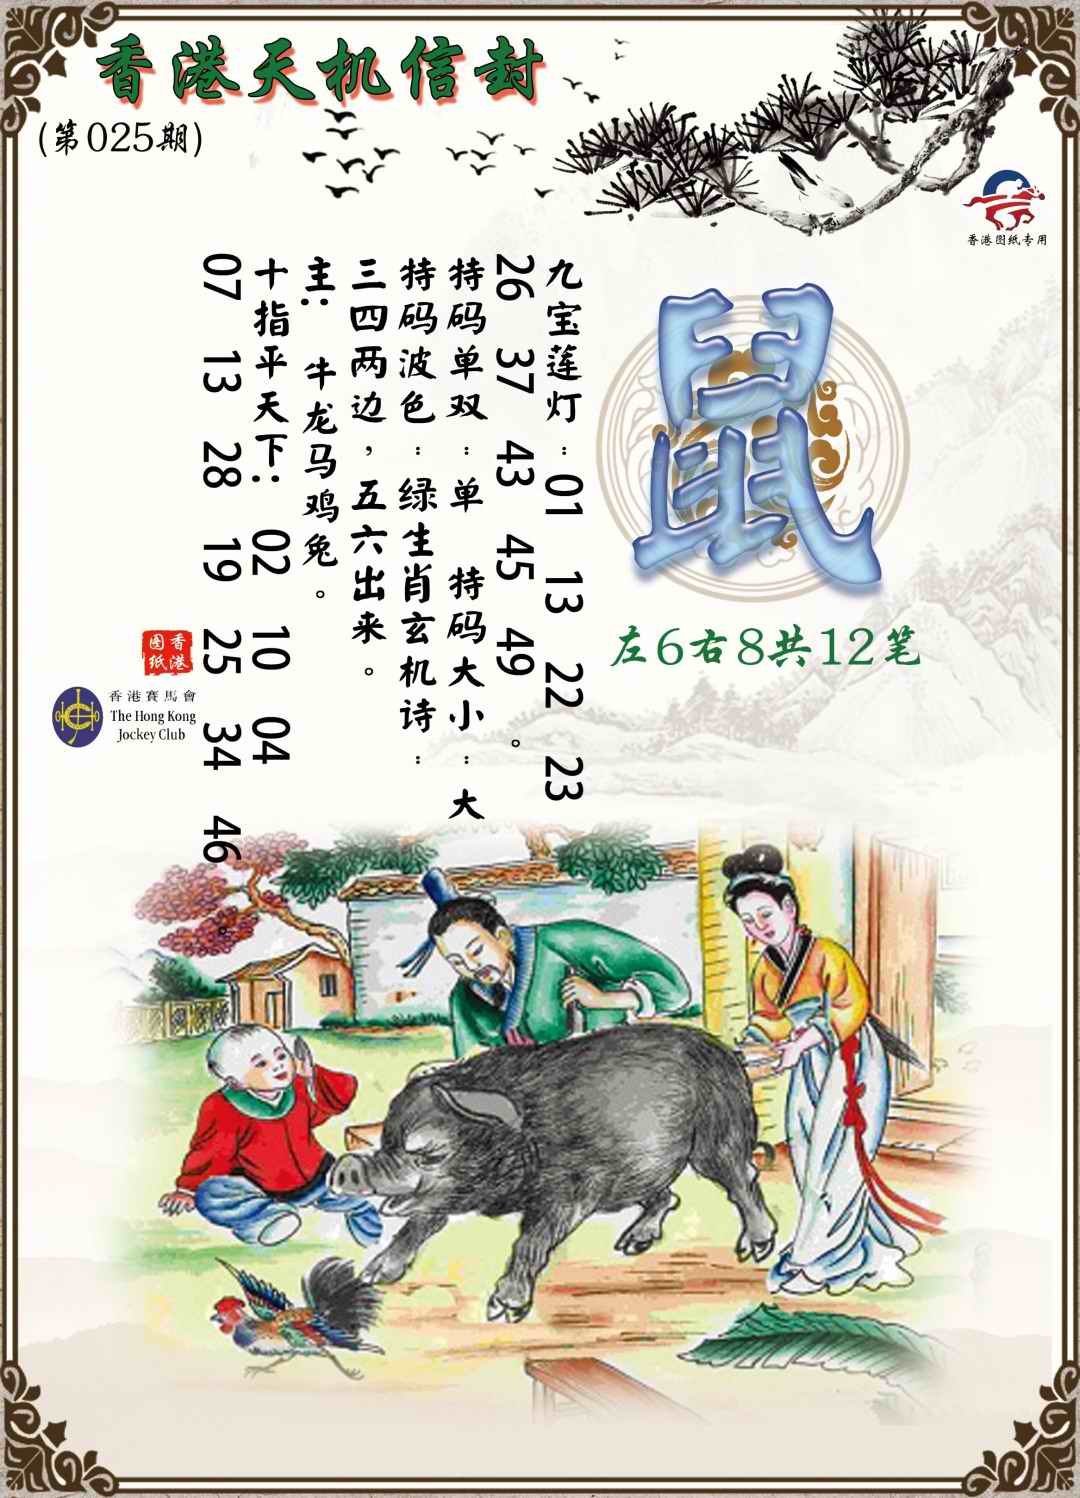 香港天机信封
(第025期)
香港图纸专用
鼠
左6右8共12笔
九宝莲灯：01 13 22 23
26 37 43 45 49。
特码单双：单 特码大小：大
特码波色：绿生肖玄机诗：
三四两边，五六出来。
主： 牛龙马鸡兔。
十指平天下： 02 10 04
07 13 28 19 25 34 46。
香港图纸
香港賽馬會
The Hong Kong
Jockey Club